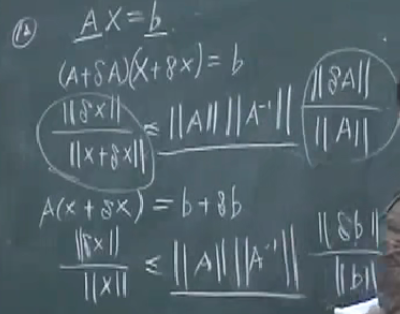 (1) AX = b
(A+δA)(X+δx) = b
||δx|| / ||x+δx|| ≤ ||A|| ||A⁻¹|| ||δA|| / ||A||
A(x+δx) = b+δb
||δx|| / ||x|| ≤ ||A|| ||A⁻¹|| ||δb|| / ||b||